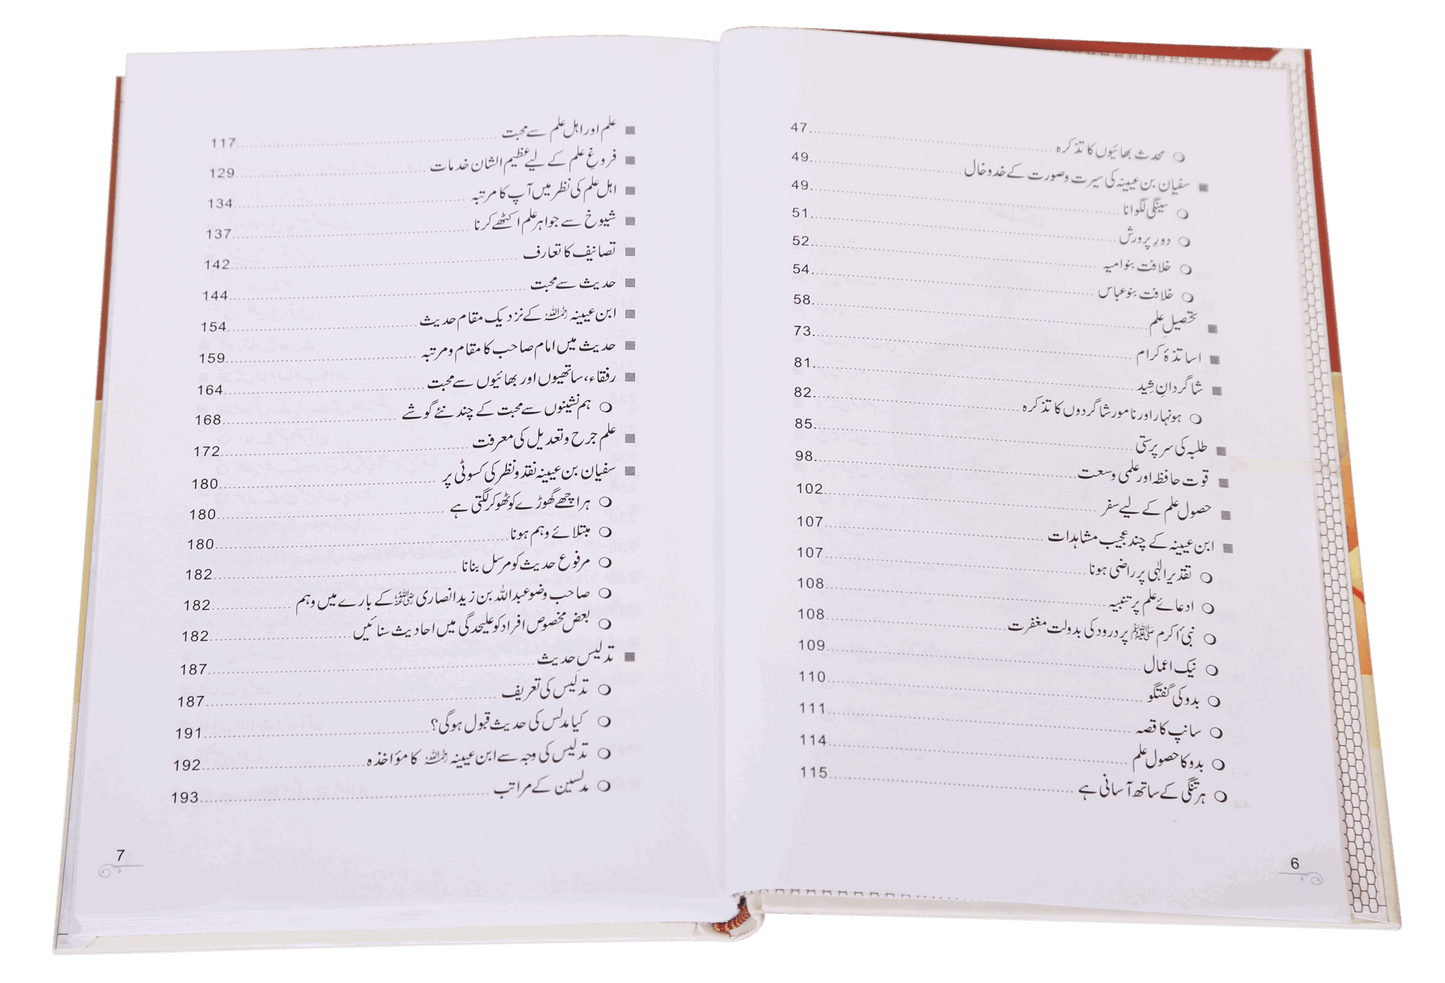 ○ محدث بھائیوں کا تذکرہ 47
■ سفیان بن عیینہ کی سیرت وصورت کے خدوخال 49
○ سینگی لگوانا 49
○ دورِ پرورش 51
○ خلافت بنوامیہ 52
○ خلافت بنوعباس 54
■ تحصیلِ علم 58
■ اساتذۂ کرام 73
■ شاگردانِ شید 81
○ ہونہار اور نامور شاگردوں کا تذکرہ 82
■ طلبہ کی سرپرستی 85
■ قوت حافظہ اور علمی وسعت 98
■ حصول علم کے لیے سفر 102
■ ابن عیینہ کے چند عجیب مشاہدات 107
○ تقدیر الٰہی پر راضی ہونا 107
○ ادعائے علم پر تنبیہ 108
○ نبی اکرم ﷺ پر درود کی بدولت مغفرت 108
○ نیک اعمال 109
○ بدو کی گفتگو 110
○ سانپ کا قصہ 111
○ بدو کا حصول علم 114
○ ہر تنگی کے ساتھ آسانی ہے 115
6
■ علم اور اہل علم سے محبت 117
■ فروغِ علم کے لیے عظیم الشان خدمات 129
■ اہل علم کی نظر میں آپ کا مرتبہ 134
■ شیوخ سے جواہر علم اکٹھے کرنا 137
■ تصانیف کا تعارف 142
■ حدیث سے محبت 144
■ ابن عیینہ رحمہ اللہ کے نزدیک مقام حدیث 154
■ حدیث میں امام صاحب کا مقام ومرتبہ 159
■ رفقاء، ساتھیوں اور بھائیوں سے محبت 164
○ ہم نشینوں سے محبت کے چند نئے گوشے 168
■ علم جرح وتعدیل کی معرفت 172
■ سفیان بن عیینہ نقد ونظر کی کسوٹی پر 180
○ ہر اچھے گھوڑے کو ٹھوکر لگتی ہے 180
○ مبتلائے وہم ہونا 180
○ مرفوع حدیث کو مرسل بنانا 182
○ صاحب وضو عبداللہ بن زید انصاری رضی اللہ عنہ کے بارے میں وہم 182
○ بعض مخصوص افراد کو علیحدگی میں احادیث سنائیں 182
■ تدلیسِ حدیث 187
○ تدلیس کی تعریف 187
○ کیا مدلس کی حدیث قبول ہوگی؟ 191
○ تدلیس کی وجہ سے ابن عیینہ رحمہ اللہ کا مؤاخذہ 192
○ مدلسین کے مراتب 193
7